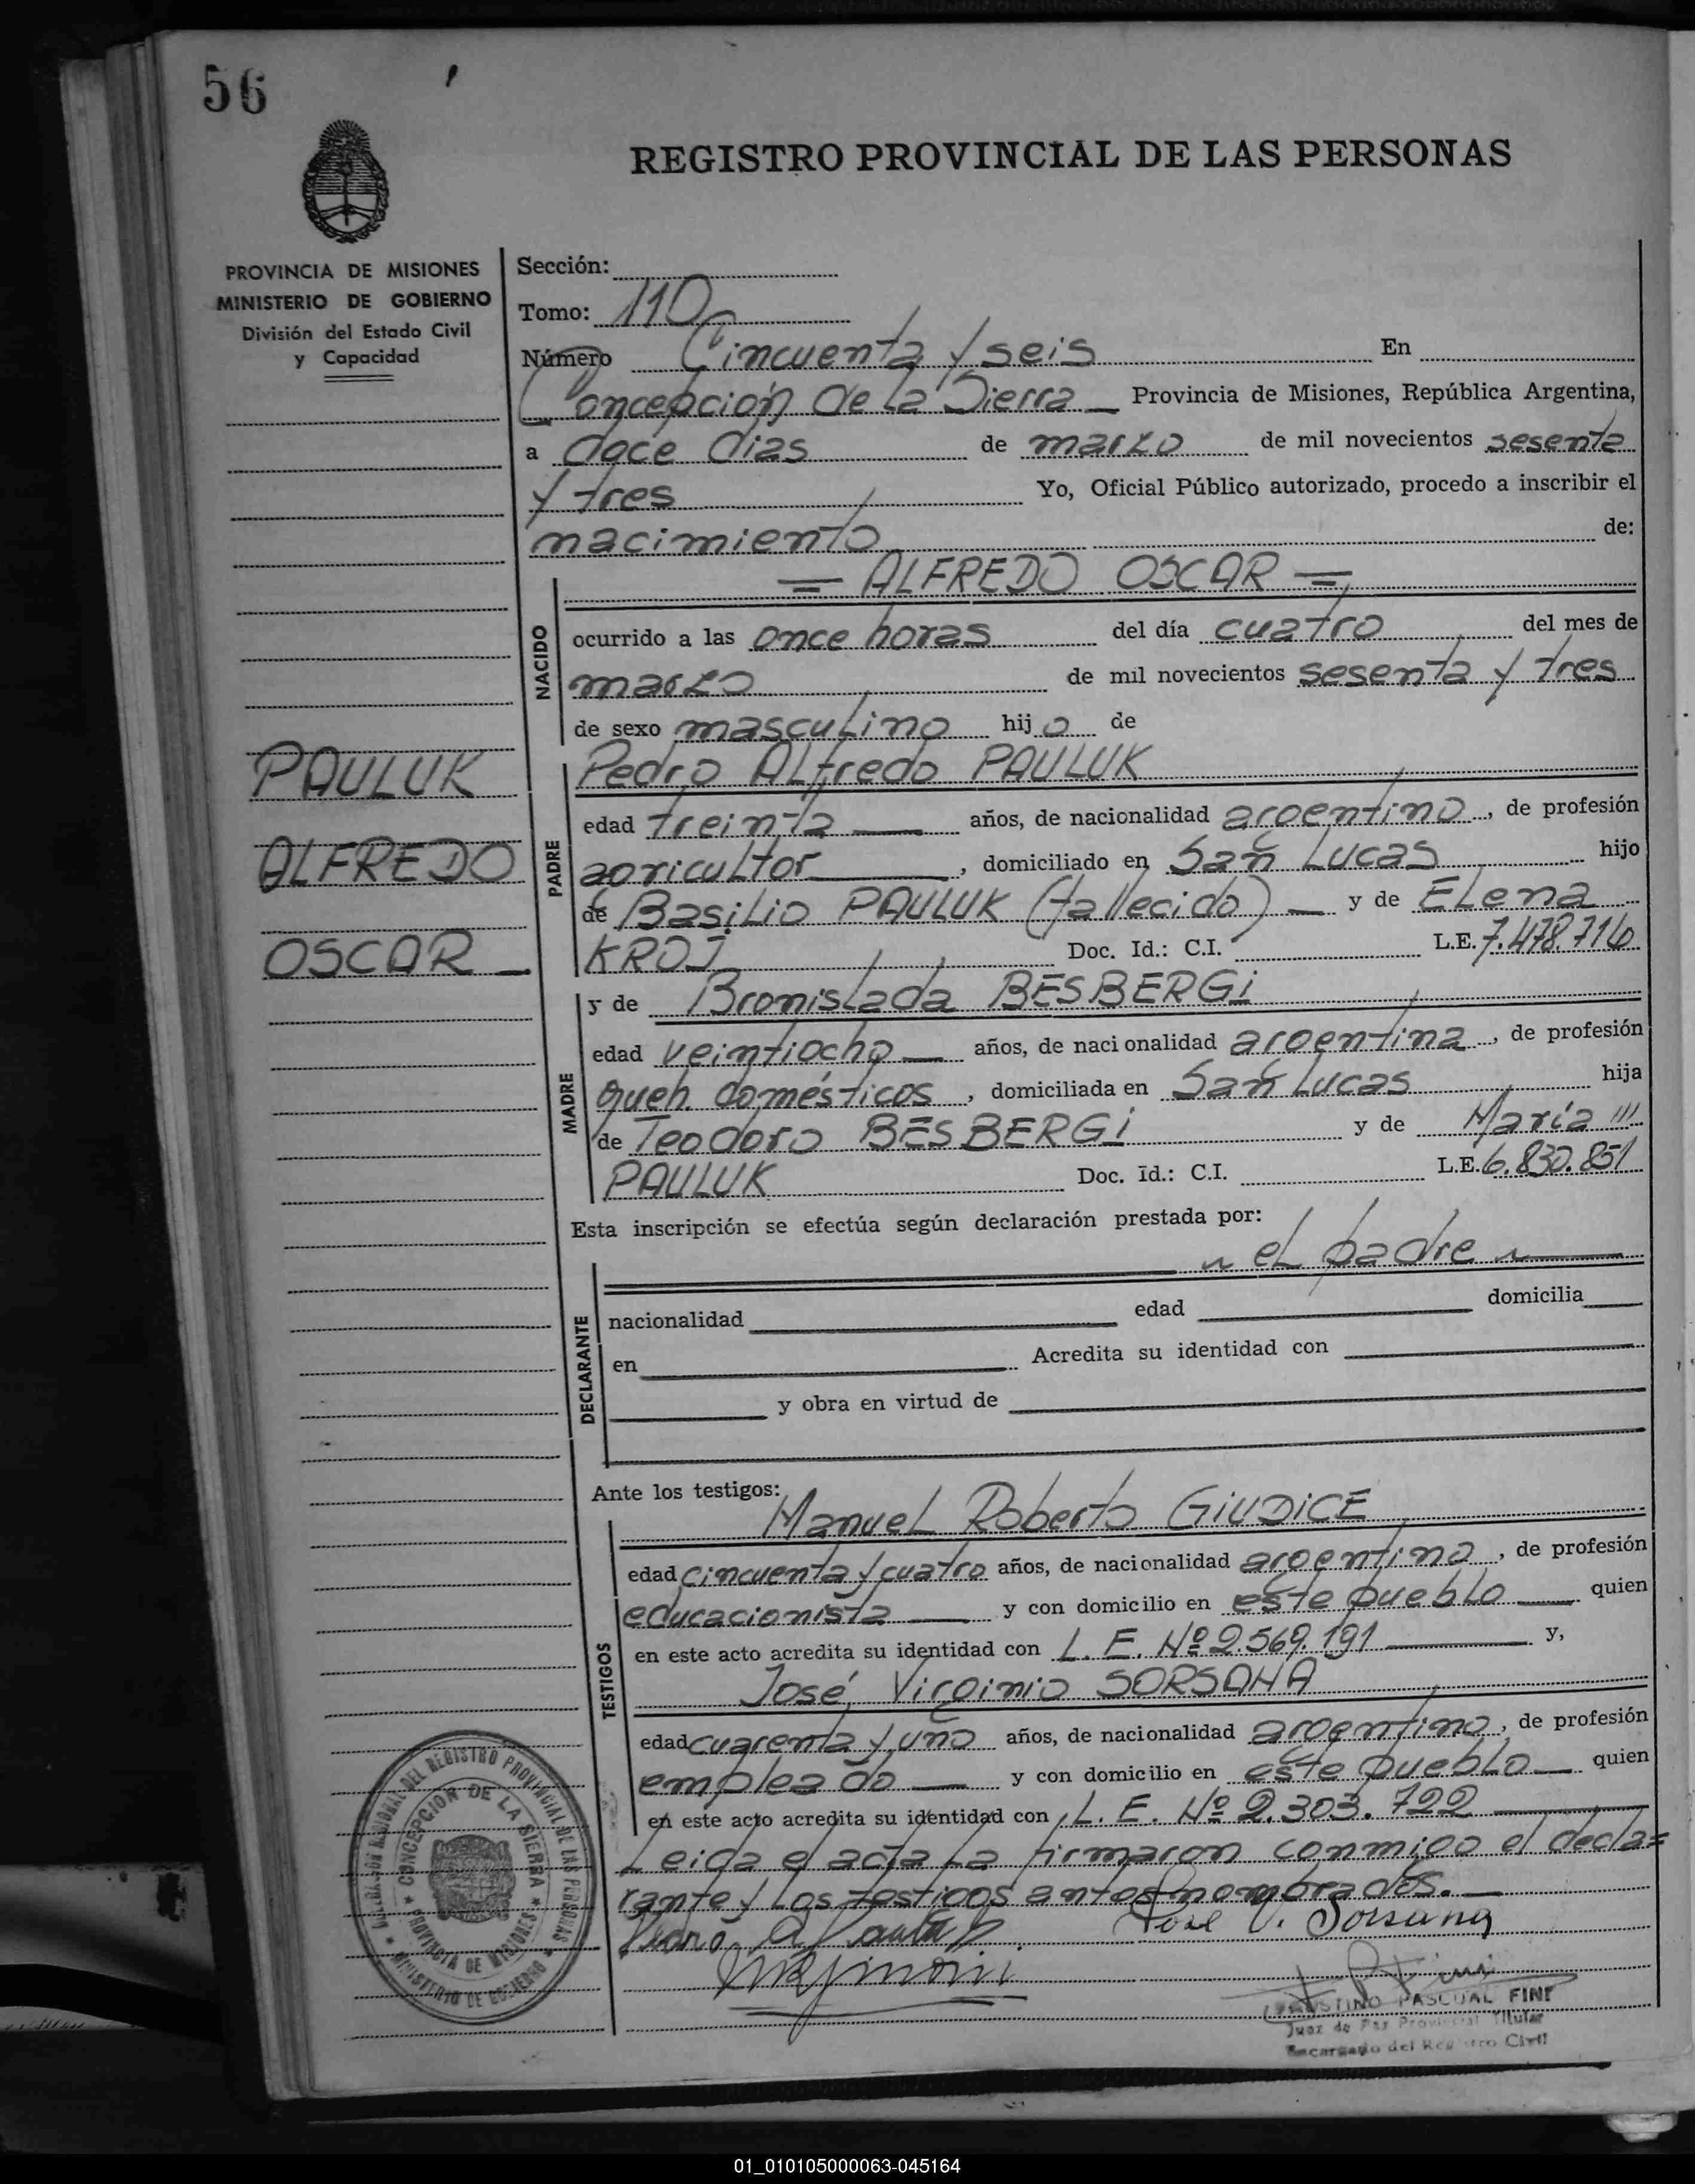 56
REGISTRO PROVINCIAL DE LAS PERSONAS
PROVINCIA DE MISIONES
MINISTERIO DE GOBIERNO
División del Estado Civil
y Capacidad
Sección:
Tomo: 110
Número Cincuenta y seis En
Concepción de La Sierra Provincia de Misiones, República Argentina,
a doce días de marzo de mil novecientos sesenta
y tres Yo, Oficial Público autorizado, procedo a inscribir el
nacimiento de:
= ALFREDO OSCAR =
NACIDO
ocurrido a las once horas del día cuatro del mes de
marzo de mil novecientos sesenta y tres
de sexo masculino hijo de
PAULUK
ALFREDO
OSCAR
PADRE
Pedro Alfredo PAULUK
edad treinta años, de nacionalidad argentino, de profesión
agricultor, domiciliado en San Lucas hijo
de Basilio PAULUK (fallecido) y de Elena
KROJ Doc. Id.: C.I. L.E. 7.478.716
MADRE
y de Bronislada BESBERGi
edad veintiocho años, de nacionalidad argentina, de profesión
queh. domésticos, domiciliada en San Lucas hija
de Teodoro BESBERGi y de María
PAULUK Doc. Id.: C.I. L.E. 6.830.851
Esta inscripción se efectúa según declaración prestada por:
el padre
DECLARANTE
nacionalidad edad domicilia
en Acredita su identidad con
y obra en virtud de
Ante los testigos:
TESTIGOS
Manuel Roberto GiUDiCE
edad cincuenta y cuatro años, de nacionalidad argentino, de profesión
educacionista y con domicilio en este pueblo quien
en este acto acredita su identidad con L. E. Nº 2.569.191 y,
José Virginio SORSANA
edad cuarenta y uno años, de nacionalidad argentino, de profesión
empleado y con domicilio en este pueblo quien
en este acto acredita su identidad con L. E. Nº 2.303.722
Leida el acta La firmaron conmigo el decla=
rante y Los testigos antes nombrados.
José V. Sorsana
PASCUAL FINI
Juez de Paz Provincial Titular
Encargado del Registro Civil
DEL REGISTRO PROVINCIAL DE LAS PERSONAS
CONCEPCION DE LA SIERRA
PROVINCIA DE MISIONES
MINISTERIO DE GOBIERNO
01_010105000063-045164